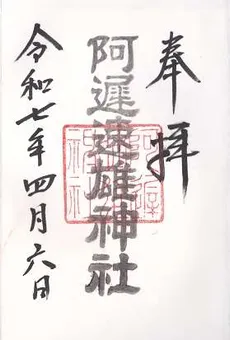 奉拝
阿遲速雄神社
令和七年四月六日